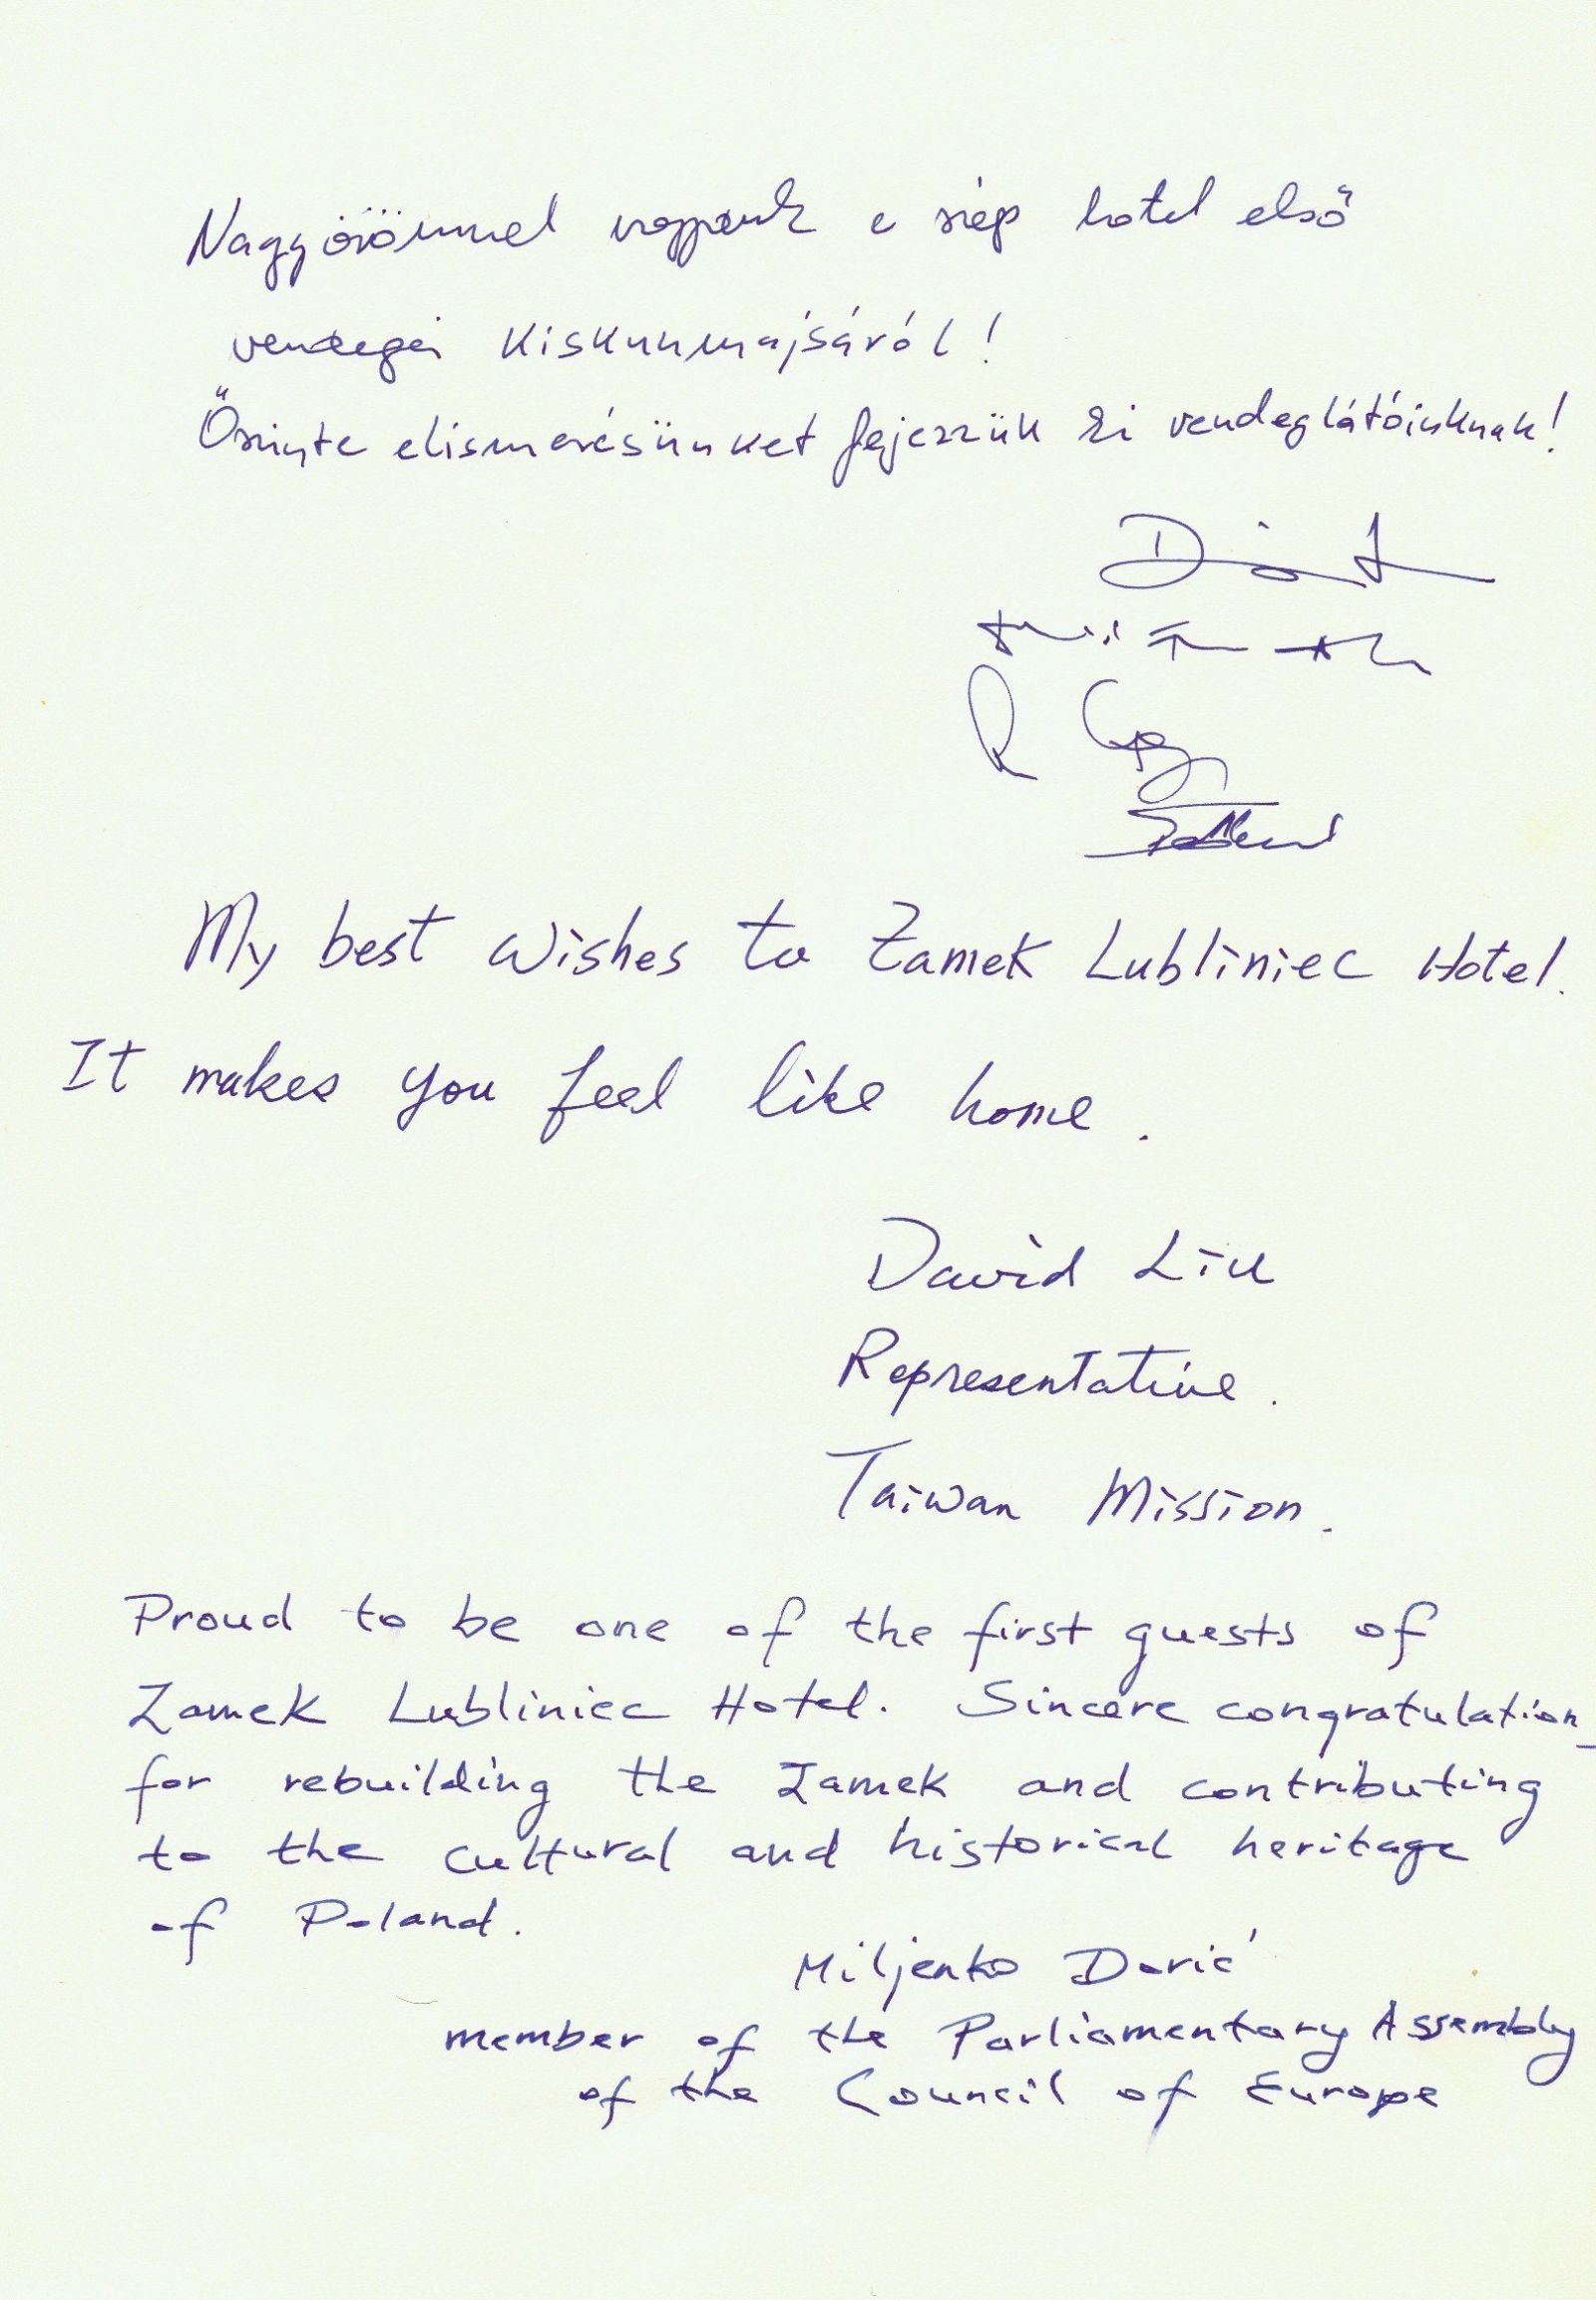 Nagy örömmel vagyunk e szép hotel első
vendégei Kiskunmajsáról!
Őszinte elismerésünket fejezzük ki vendeglátóinknak!
My best wishes to Zamek Lubliniec Hotel.
It makes you feel like home.
David Liu
Representative.
Taiwan Mission.
Proud to be one of the first guests of
Zamek Lubliniec Hotel. Sincere congratulation
for rebuilding the Zamek and contributing
to the cultural and historical heritage
of Poland.
Miljenko Dorić
member of the Parliamentary Assembly
of the Council of Europe